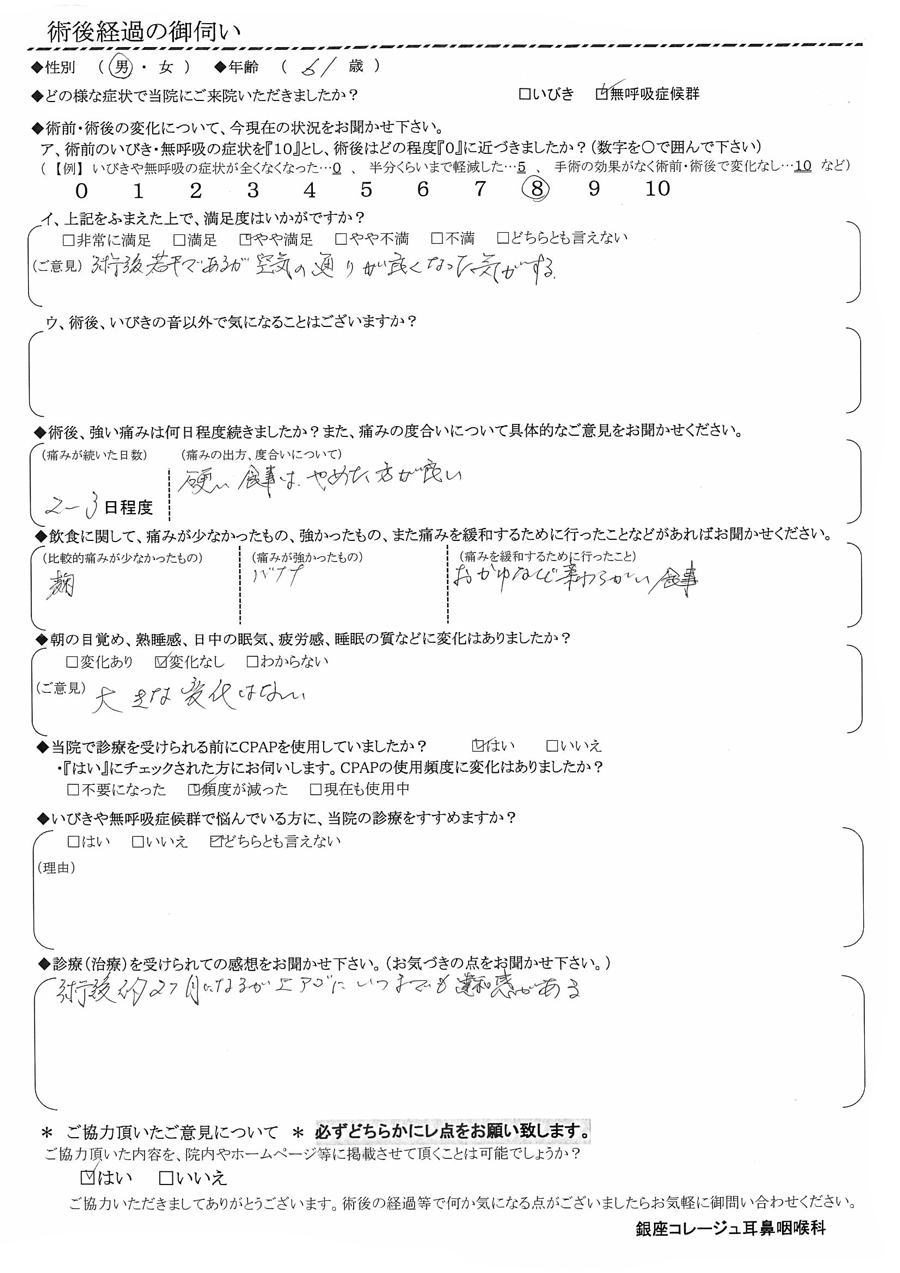 術後経過の御伺い
◆性別 （ 男 ・ 女 ） ◆年齢 （ 61 歳 ）
◆どの様な症状で当院にご来院いただきましたか？ □いびき ☑無呼吸症候群
◆術前・術後の変化について、今現在の状況をお聞かせ下さい。
ア、術前のいびき・無呼吸の症状を『10』とし、術後はどの程度『0』に近づきましたか？（数字を○で囲んで下さい）
（【例】いびきや無呼吸の症状が全くなくなった…0 、 半分くらいまで軽減した…5 、 手術の効果がなく術前・術後で変化なし…10 など）
0 1 2 3 4 5 6 7 8 9 10
イ、上記をふまえた上で、満足度はいかがですか？
□非常に満足 □満足 ☑やや満足 □やや不満 □不満 □どちらとも言えない
（ご意見） 術後若干であるが空気の通りが良くなった気がする.
ウ、術後、いびきの音以外で気になることはございますか？
◆術後、強い痛みは何日程度続きましたか？また、痛みの度合いについて具体的なご意見をお聞かせください。
（痛みが続いた日数） （痛みの出方、度合いについて）
硬い食事は、やめた方が良い
2〜3日程度
◆飲食に関して、痛みが少なかったもの、強かったもの、また痛みを緩和するために行ったことなどがあればお聞かせください。
（比較的痛みが少なかったもの） （痛みが強かったもの） （痛みを緩和するために行ったこと）
バナナ おかゆなど柔わらかい食事
◆朝の目覚め、熟睡感、日中の眠気、疲労感、睡眠の質などに変化はありましたか？
□変化あり ☑変化なし □わからない
（ご意見） 大きな変化はない
◆当院で診療を受けられる前にCPAPを使用していましたか？ ☑はい □いいえ
・『はい』にチェックされた方にお伺いします。CPAPの使用頻度に変化はありましたか？
□不要になった ☑頻度が減った □現在も使用中
◆いびきや無呼吸症候群で悩んでいる方に、当院の診療をすすめますか？
□はい □いいえ ☑どちらとも言えない
（理由）
◆診療（治療）を受けられての感想をお聞かせ下さい。（お気づきの点をお聞かせ下さい。）
術後約2ヶ月になるが上アゴにいつまでも違和感がある
＊ ご協力頂いたご意見について ＊ 必ずどちらかにレ点をお願い致します。
ご協力頂いた内容を、院内やホームページ等に掲載させて頂くことは可能でしょうか？
☑はい □いいえ
ご協力いただきましてありがとうございます。術後の経過等で何か気になる点がございましたらお気軽に御問い合わせください。
銀座コレージュ耳鼻咽喉科